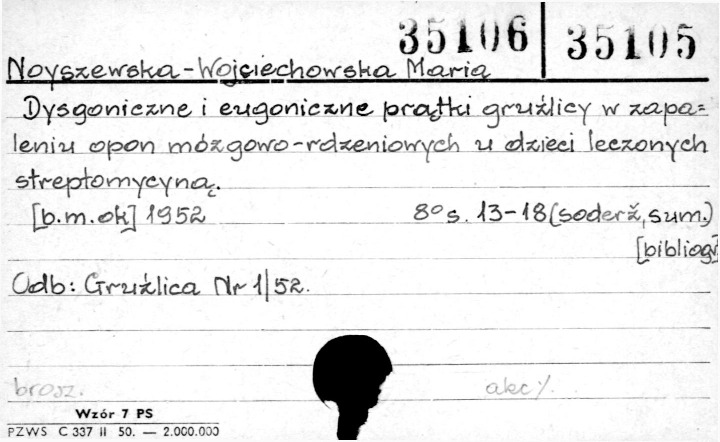 35106 35105
Noyszewska-Wojciechowska Maria
Dysgoniczne i eugoniczne prątki gruźlicy w zapa=
leniu opon mózgowo-rdzeniowych u dzieci leczonych
streptomycyną.
[b.m.ok] 1952 8° s. 13-18 (soderž, sum.)
[bibliogr
Odb: Gruźlica Nr 1/52.
brosz. akc %.
Wzór 7 PS
PZWS C 337 II 50. — 2.000.000